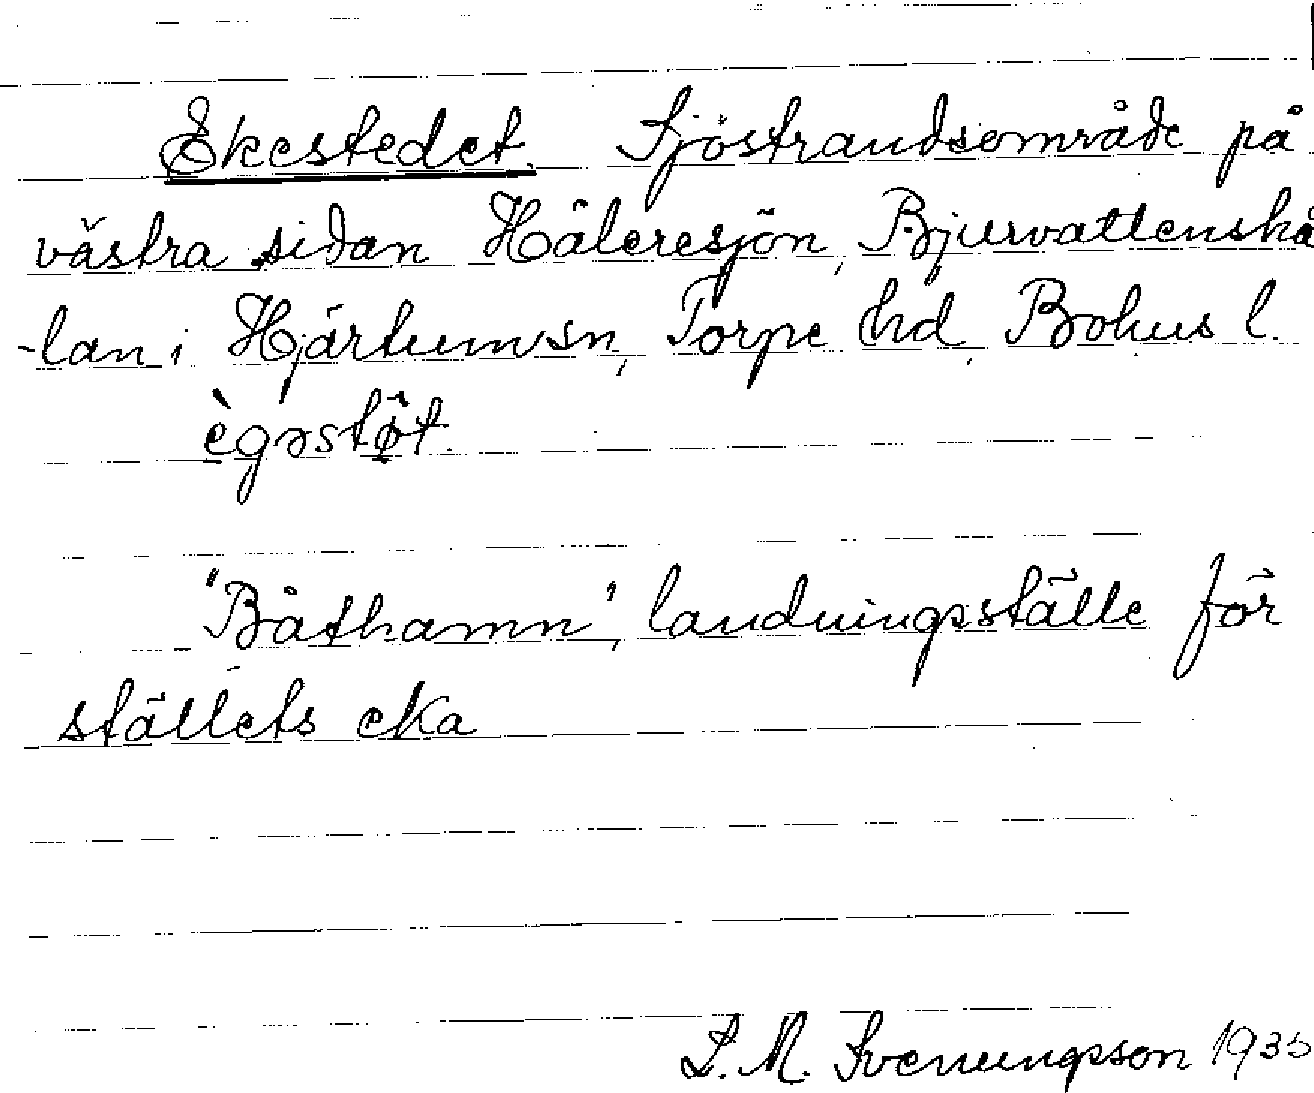 Ekestedet. Sjöstrandsområde på
västra sidan Häleresjön, Bjurvattenskå
-lan i Hjärtum sn, Torpe hd, Bohus l.
ègəstǿt.
"Båthamn", landningsställe för
ställets eka
S. M. Svenungsson 1935